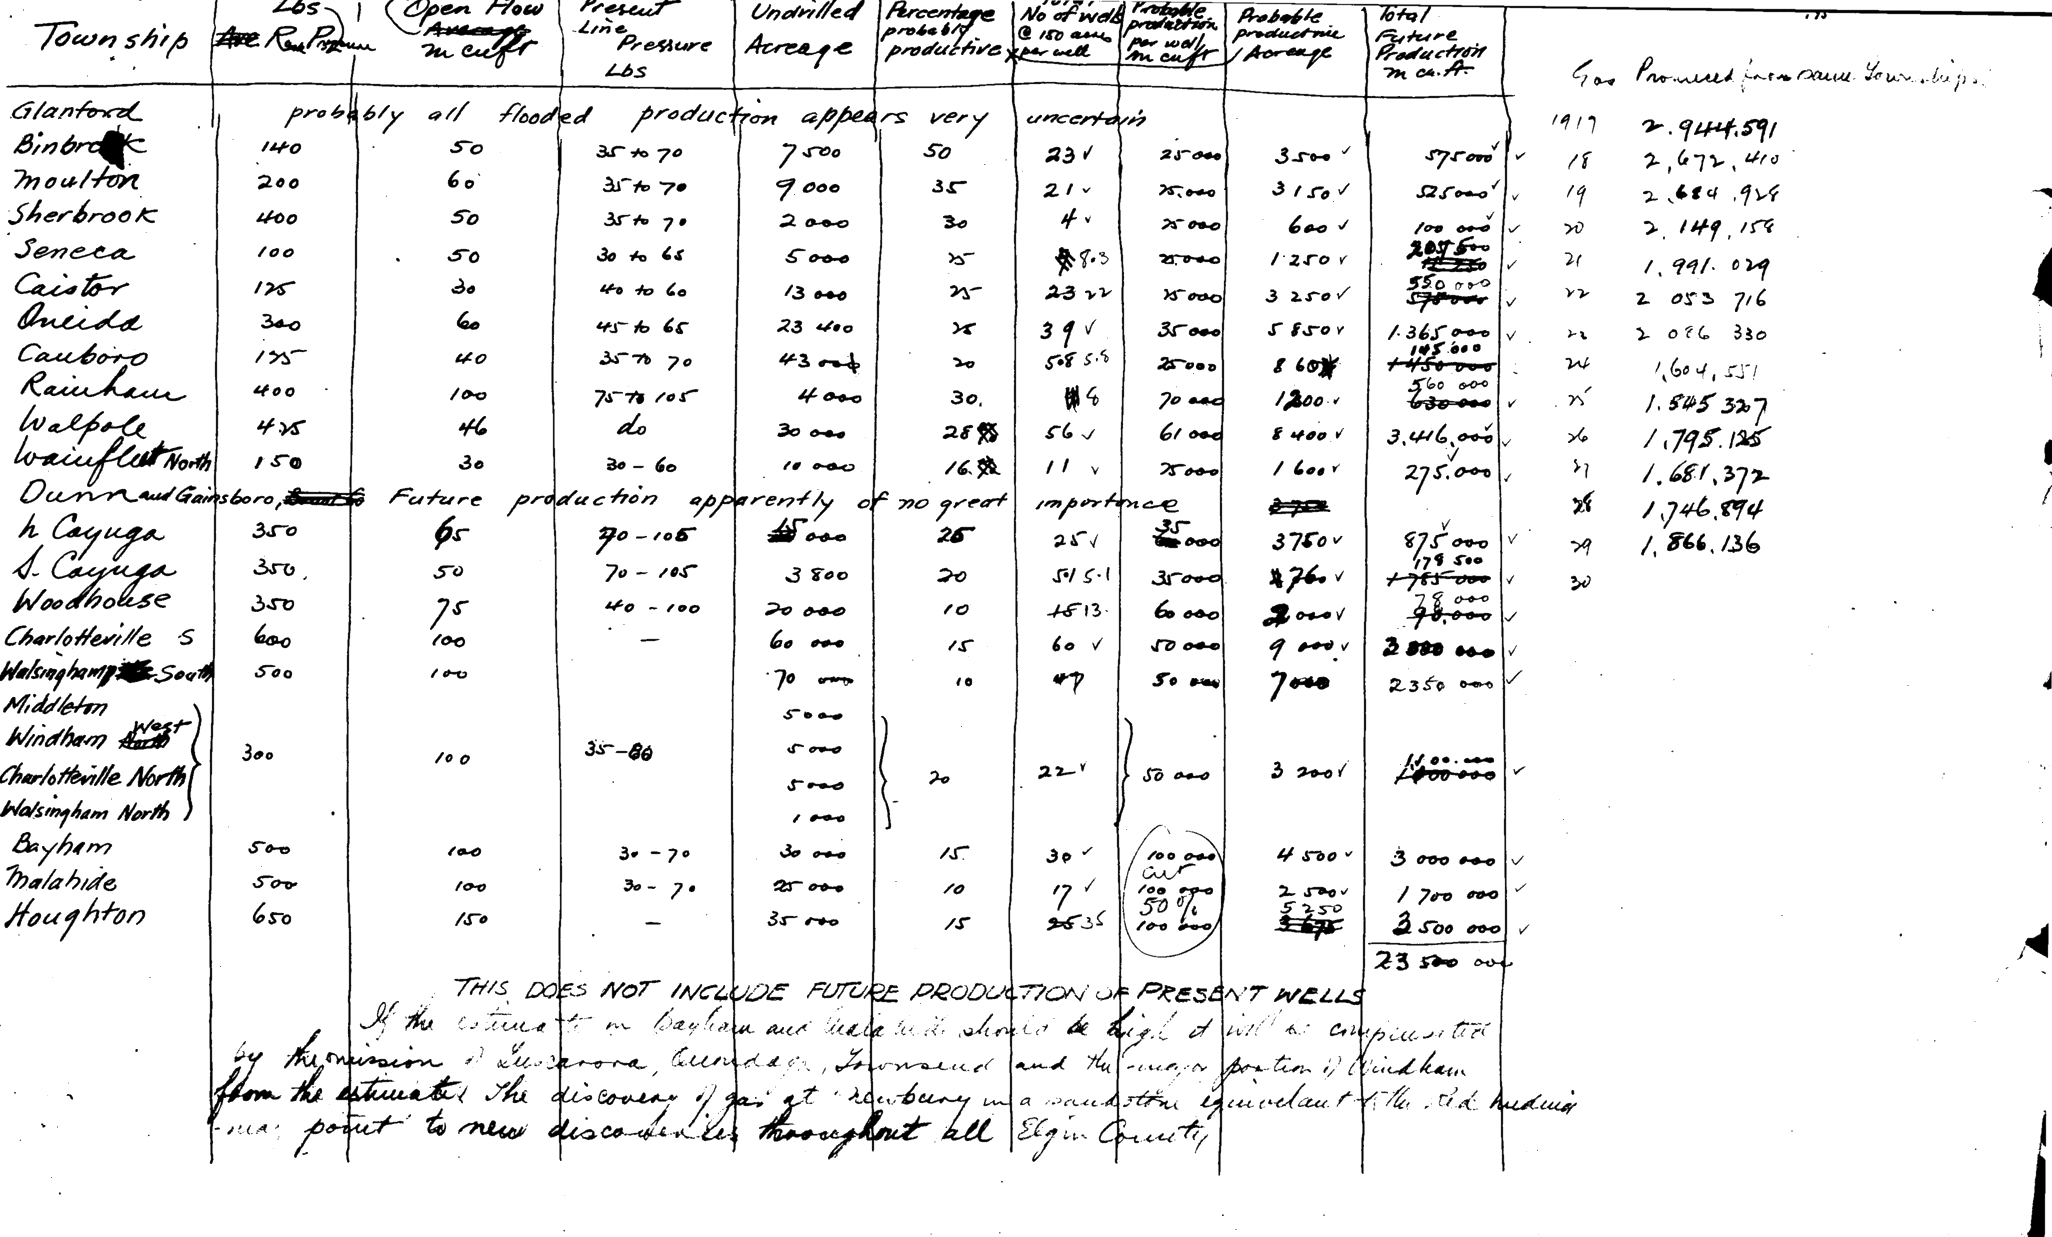 Township | Lbs Rock Pressure | Open Flow m cu ft | Present Line Pressure Lbs | Undrilled Acreage | Percentage probably productive | No of wells @ 150 acres per well | Probable production per well m cu ft | Probable productive Acreage | Total Future Production m cu. ft. | Gas Produced from same Townships
Glanford probably all flooded production appears very uncertain
1917 2.944.591
Binbrook 140 50 35 to 70 7500 50 23 ✓ 25000 3500 ✓ 575000 ✓ ✓
18 2,672,410
Moulton 200 60 35 to 70 9.000 35 21 ✓ 25.000 3150 ✓ 525000 ✓ ✓
19 2.684.928
Sherbrook 400 50 35 to 70 2000 30 4 ✓ 25000 600 ✓ 100 000 ✓ ✓
20 2.149.158
Seneca 100 50 30 to 65 5000 25 8.3 25.000 1250 ✓ 207500 ✓
21 1.991.029
Caistor 125 30 40 to 60 13000 25 23 22 25000 3250 ✓ 550 000 575000 ✓
22 2 053 716
Oneida 300 60 45 to 65 23 400 25 39 ✓ 35000 5850 ✓ 1.365000 ✓
23 2 086 330
Canboro 125 40 35 to 70 43 00 20 58 5.8 25000 860 145.000 1450000
24 1,604,551
Rainham 400 100 75 to 105 4000 30. 8 70000 1200 ✓ 560 000 630000 ✓
25 1.845 327
Walpole 425 46 do 30000 28 56 ✓ 61000 8400 ✓ 3.416,000 ✓ ✓
26 1,795.125
Wainfleet North 150 30 30-60 10 000 16. 11 ✓ 25000 1600 ✓ 275.000 ✓ ✓
27 1.681.372
Dunn and Gainsboro, Future production apparently of no great importance
28 1,746.894
N Cayuga 350 65 70-105 15 000 25 25 ✓ 35 000 3750 ✓ 875000 ✓ ✓
29 1,866.136
S. Cayuga 350. 50 70-105 3800 20 51 5.1 35000 760 ✓ 178 500 1785000 ✓
30
Woodhouse 350 75 40-100 20 000 10 13. 60 000 2000 ✓ 78 000 ✓
Charlotteville S 600 100 — 60 000 15 60 ✓ 50000 9 000 ✓ 3 000 000 ✓
Walsingham South 500 100 70 000 10 47 50 000 7000 2350 000 ✓
Middleton 5000
Windham West North 5000
300 100 35-80 20 22 ✓ 50 000 3 200 ✓ 1,100.000 ✓
Charlotteville North 5000
Walsingham North 1000
Bayham 500 100 30-70 30 000 15. 30 ✓ 100 000 4500 ✓ 3 000 000 ✓
cut
Malahide 500 100 30-70 25 000 10 17 ✓ 100 000 2500 ✓ 1 700 000 ✓
50%
Houghton 650 150 — 35 000 15 25 35 100 000 5250 3675 3 500 000 ✓
23 500 000
THIS DOES NOT INCLUDE FUTURE PRODUCTION OF PRESENT WELLS
If the estimate on Bayham and Malahide should be high it will be compensated
by the omission of Tuscarora, Onondaga, Townsend and the major portion of Windham
from the estimates The discovery of gas at Newbury in a sandstone equivelant to the Red Medina
may point to new discoveries throughout all Elgin County